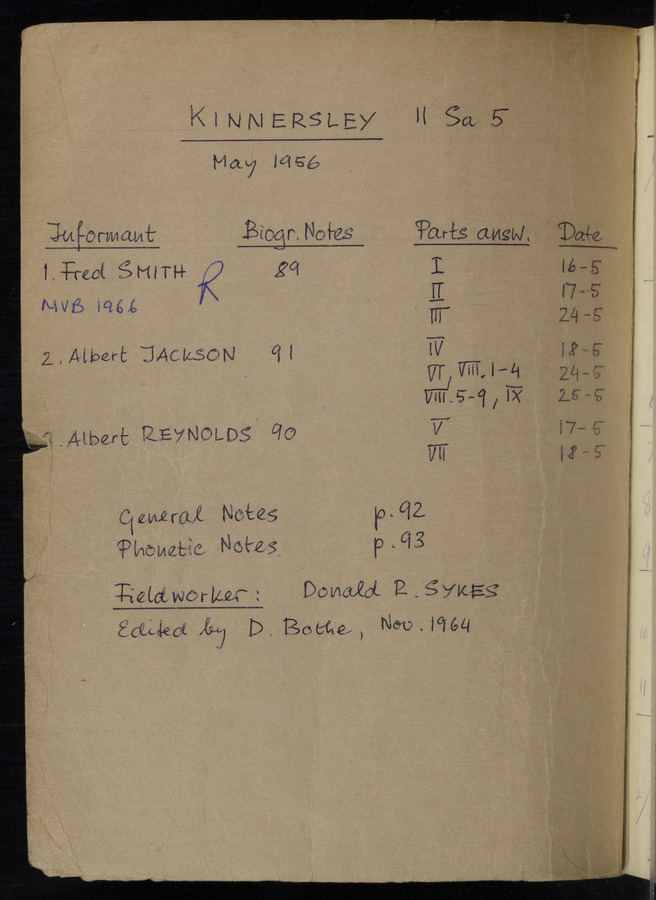 KINNERSLEY 11 Sa 5
May 1956
Informant Biogr. Notes Parts answ. Date
1. Fred SMITH R 89 I 16-5
MVB 1966 II 17-5
III 24-5
2. Albert JACKSON 91 IV 18-5
VI, VIII.1-4 24-5
VIII.5-9, IX 25-5
3. Albert REYNOLDS 90 V 17-5
VII 18-5
General Notes p. 92
Phonetic Notes p. 93
Fieldworker: Donald R. SYKES
Edited by D. Bothe, Nov. 1964